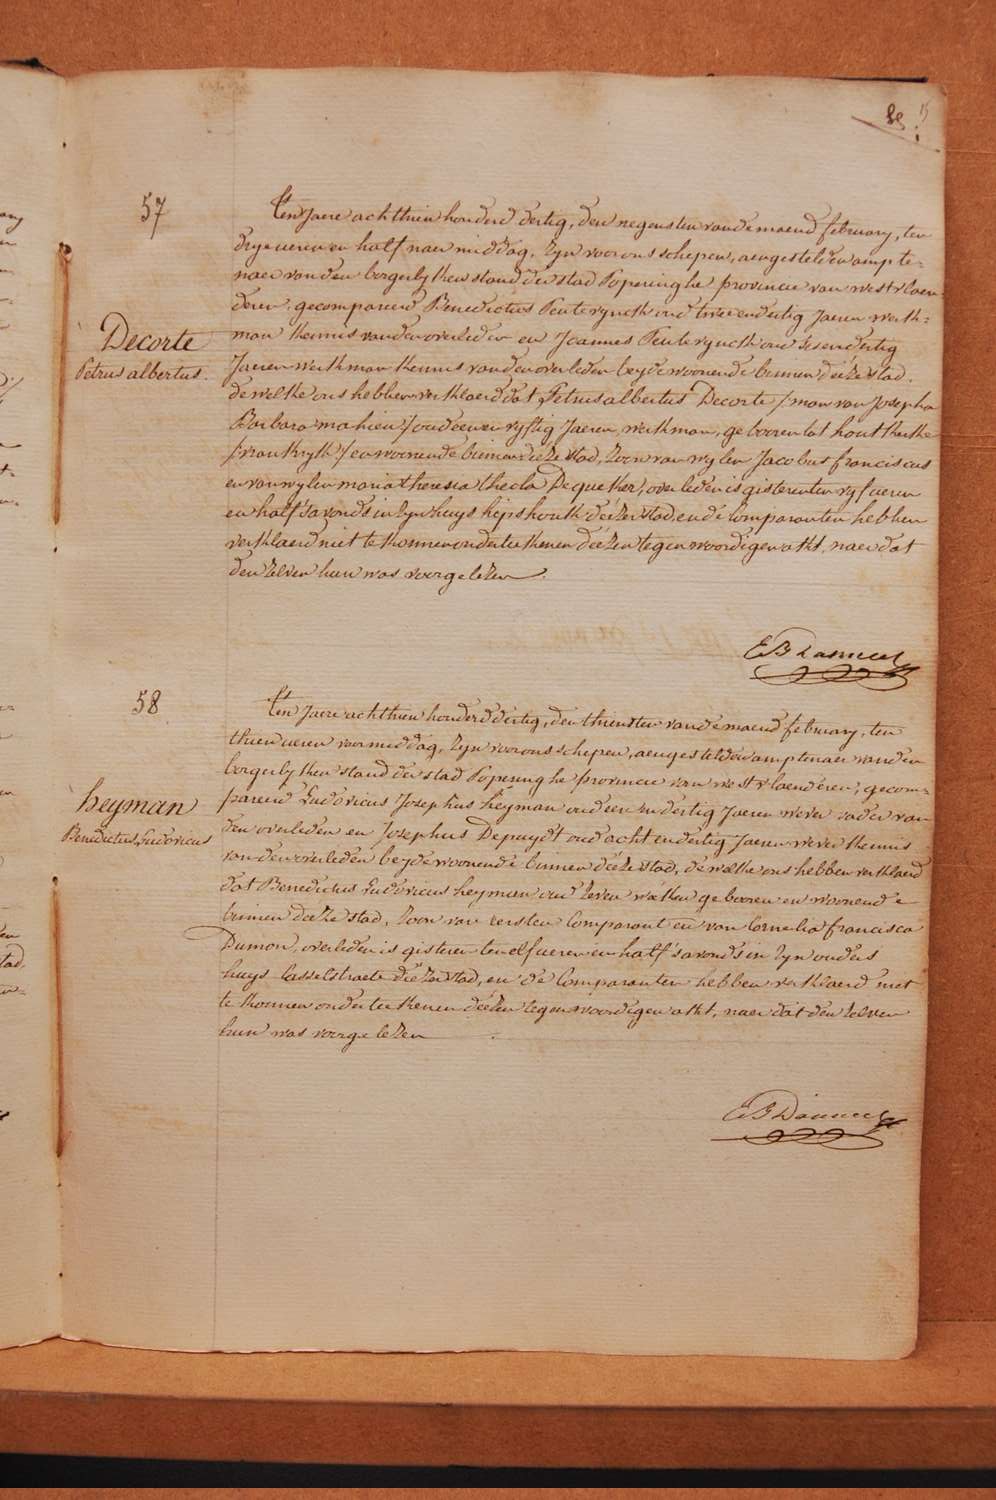 57
Ten Jaere achthien honderd dertig, den negensten vande maend february, ten
drye ueren en half naer middag, Zyn voor ons schepen, aengestelden ampte-
naer van den borgerlyken stand der stad Poperinghe provincie van westvlaen-
deren, gecompareerd Benedictus Peuterynck oud twee en dertig Jaeren werk-
man kennis van den overleden en Joannes Peuterynck oud sesendertig
Jaeren werkman kennis van den overleden beyde woonende binnen deéze stad.
de welke ons hebben verklaerd dat Petrus albertus Decorte /:man van Josepha
Barbara mahieu:/ oud eenen vyftig Jaeren, werkman, gebooren tot houtkerke
/:vrankryk:/ en woonende binnen deéze stad, Zoon van wylen Jacobus franciscus
en van wylen maria theresia thecla Dequeker, overleden is gisteren ten vyf ueren
en half s'avonds in Zyn huys hipshoek deézer stad en de Comparanten hebben
verklaerd niet te konnen onderteekenen deézen tegenwoordigen akt, naer dat
den Zelven hun was voorgelezen.
Decorte
Petrus albertus.
58
Ten Jaere achthien honderd dertig, den thiensten vande maend february, ten
thien ueren voormiddag, Zyn voor ons schepen, aengestelden amptenaer van den
borgerlyken stand der stad Poperinghe provincie van westvlaenderen, gecom-
pareerd Ludovicus Josephus heyman oud een en dertig Jaeren wever vader van
den overleden en Josephus Depuydt oud acht en dertig Jaeren wever kennis
van den overleden beyde woonende binnen deéze stad, de welke ons hebben verklaerd
dat Benedictus Ludovicus heyman oud Zeven weken gebooren en woonende
binnen deéze stad, Zoon van eersten Comparant en van Cornelia francisca
Dumon, overleden is gisteren ten elf ueren en half s'avonds in Zyn ouders
huys Casselstraete deézer stad, en de Comparanten hebben verklaerd niet
te konnen onderteekenen deézen tegenwoordigen akt, naer dat den Zelven
hun was voorgelezen
heyman
Benedictus Ludovicus